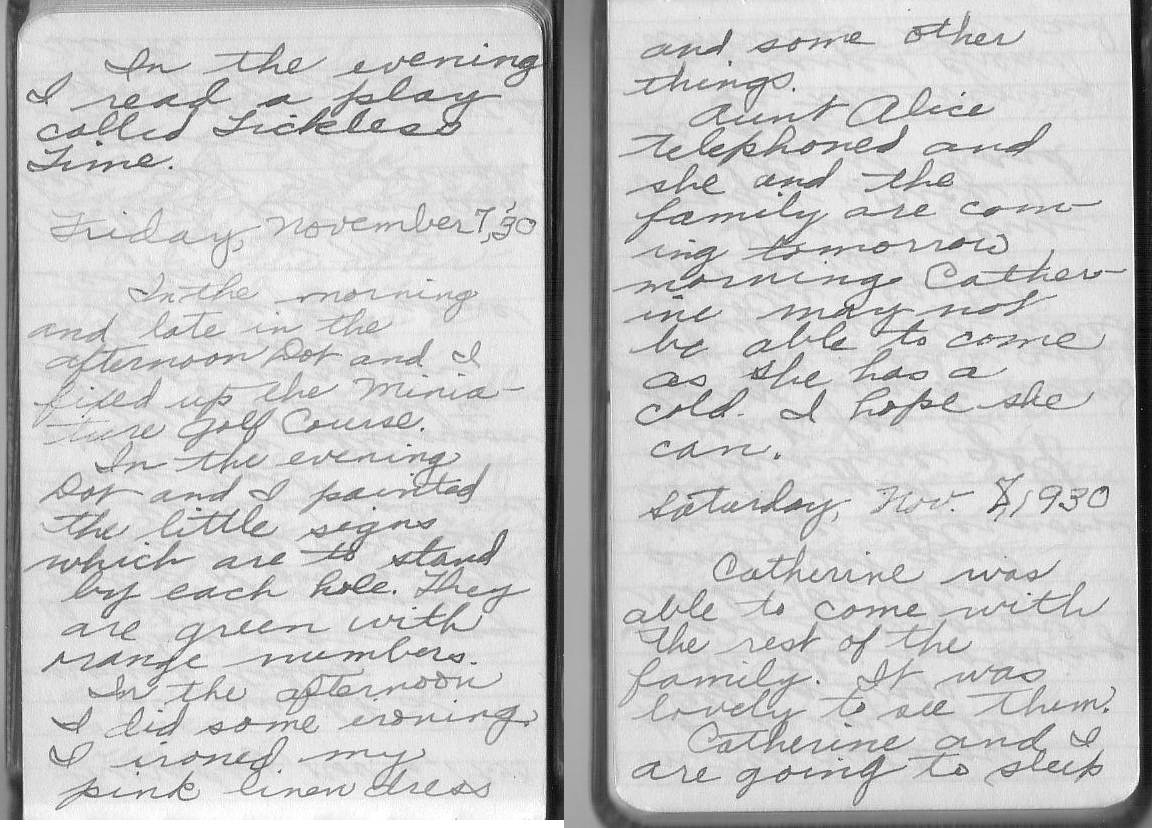 In the evening
I read a play
called Tickless
Time.
Friday, November 7, '30
In the morning
and late in the
afternoon Dot and I
fixed up the Minia-
ture Golf Course.
In the evening
Dot and I painted
the little signs
which are to stand
by each hole. They
are green with
orange numbers.
In the afternoon
I did some ironing.
I ironed my
pink linen dress
and some other
things.
Aunt Alice
telephoned and
she and the
family are com-
ing tomorrow
morning. Cather-
ine may not
be able to come
as she has a
cold. I hope she
can.
Saturday, Nov. 8, 1930
Catherine was
able to come with
the rest of the
family. It was
lovely to see them.
Catherine and I
are going to sleep